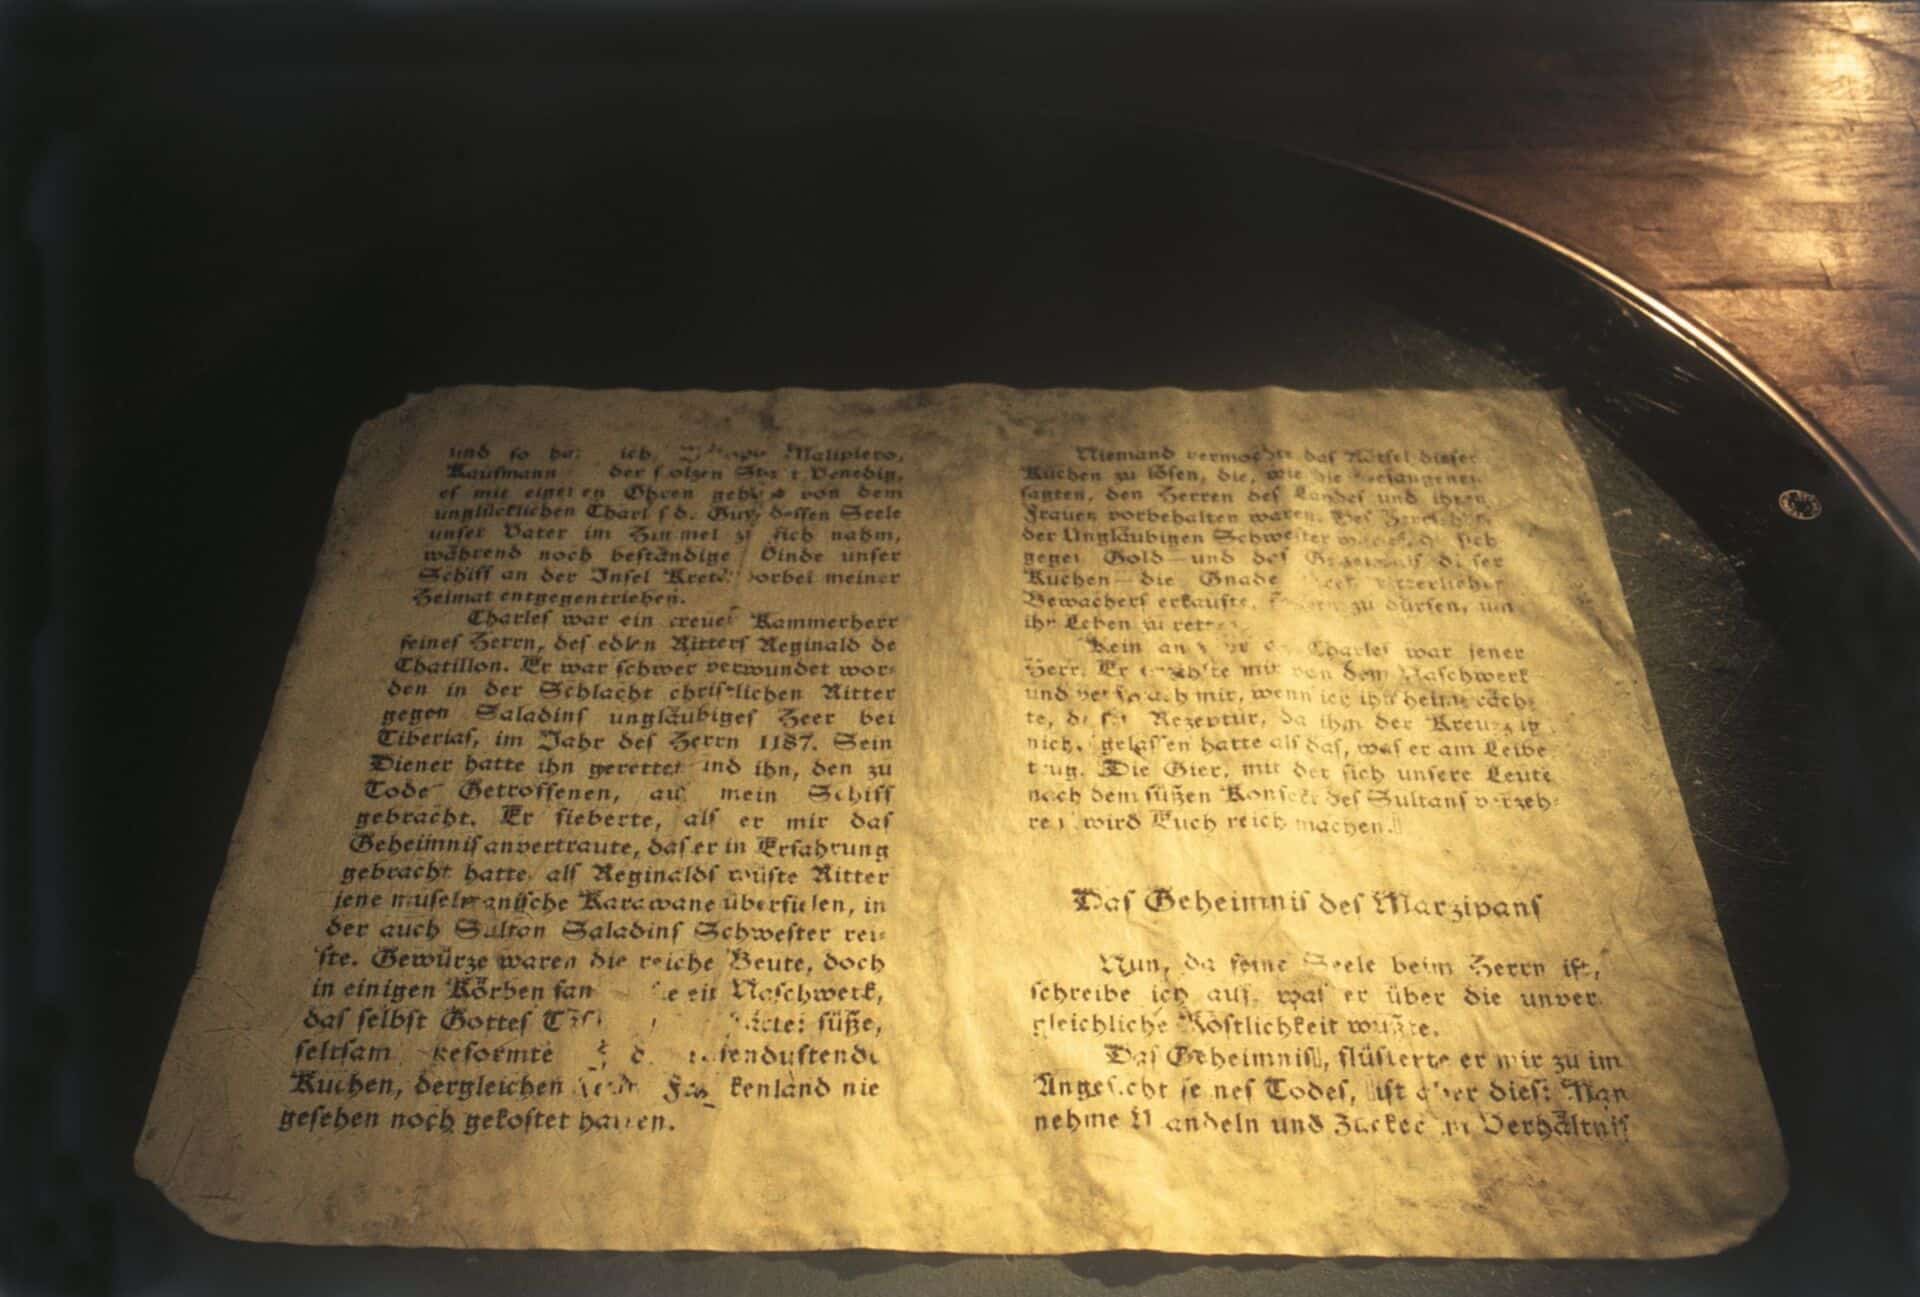 und so ich, Malipiero,
Kaufmann der Venedig,
es mit eigenen Ohren von dem
unglücklichen Charles de Guy, dessen Seele
unser Vater im Himmel zu sich nahm,
während noch beständige Winde unser
Schiff an der Insel Kreta vorbei meiner
Heimat entgegentrieben.
Charles war ein treuer Kammerherr
seines Herrn, des edlen Ritters Reginald de
Chatillon. Er war schwer verwundet wor-
den in der Schlacht christlichen Ritter
gegen Saladins ungläubiges Heer bei
Tiberias, im Jahr des Herrn 1187. Sein
Diener hatte ihn gerettet und ihn, den zu
Tode Getroffenen, auf mein Schiff
gebracht. Er fieberte, als er mir das
Geheimnis anvertraute, das er in Erfahrung
gebracht hatte, als Reginalds wüste Ritter
jene muselmanische Karawane überfielen, in
der auch Sultan Saladins Schwester rei-
ste. Gewürze waren die reiche Beute, doch
in einigen Körben ein Naschwerk,
das selbst Gottes süße,
seltsam geformte
Kuchen, dergleichen Frankenland nie
gesehen noch gekostet hatten.
Niemand vermochte das Rätsel dieser
Kuchen zu lösen, die, wie die Gefangenen
sagten, den Herren des Landes und ihren
Frauen vorbehalten waren. Des
der Ungläubigen Schwester sich
gegen Gold—und des dieser
Kuchen—die Gnade ritterlichen
Bewachers erkaufte, zu dürfen, um
ihr Leben zu retten.
Kein Charles war jener
Herr. Er erzählte mir von dem Naschwerk
und versprach mir, wenn ich ihn heimbräch-
te, Rezeptur, da ihm der Kreuzzug
nichts gelassen hatte als das, was er am Leibe
trug. Die Gier, mit der sich unsere Leute
nach dem süßen Konfekt des Sultans verzeh-
ren, wird Euch reich machen.
Das Geheimnis des Marzipans
Nun, da seine Seele beim Herrn ist,
schreibe ich auf, was er über die unver
gleichliche Köstlichkeit wußte.
Das Geheimnis, flüsterte er mir zu im
Angesicht seines Todes, ist aber dies: Man
nehme Mandeln und Zucker im Verhältnis